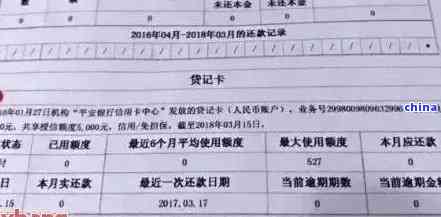 未还本金 未还本金
0 0 0 0
2016年04月-2018年03月的还款记录
/ / / / / / / / / / / / / / / / / / / / / / / *
贷记卡
01月27日机构“平安银行信用卡中心”发放的贷记卡(人民币账户),业务号2998009809632996
china
0元,共享授信额度5,000元,信用/免担保。截至2018年03月15日,
状态 已用额度 最近6个月平均使用额度 最大使用额度 本月应还款
0 0 527 0
日 本月实还款 最近一次还款日期 当前逾期期数 当前逾期金额
.15 0 2017.03.17 0 0